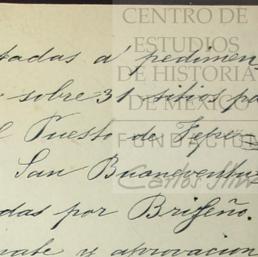 CENTRO DE
ESTUDIOS
DE HISTORIA
DE MÉXICO
FUNDACIÓN
Carlos Slim
tadas a' pedimen
sobre 31 sitios pa
l Puesto de Tepe
San Buenaventu
das por Briseño.
mate y aprovacion